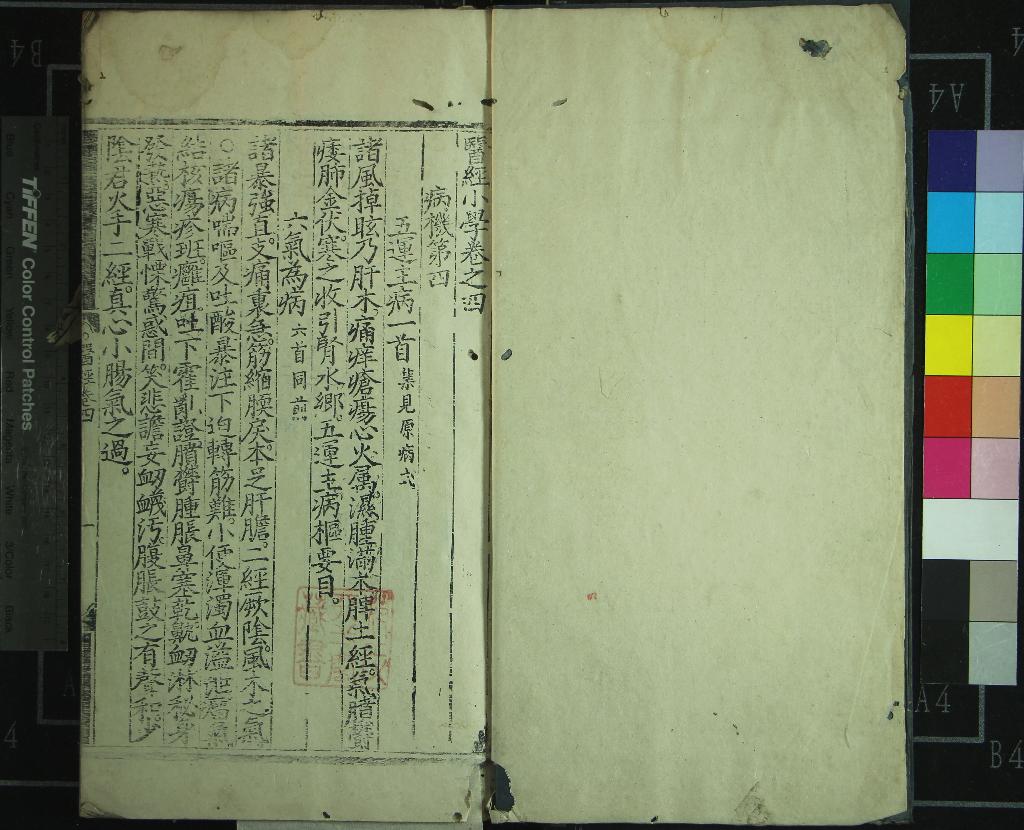 醫經小學卷之四
病機第四
五運主病一首 集見原病式
諸風掉眩乃肝木痛痒瘡瘍心火属濕腫滿本脾土經氣膹鬱
痿肺金伏寒之收引腎水鄉五運主病樞要目
六氣為病 六首同前
諸暴強直支痛裏急筋縮腰戾本足肝膽二經厥陰風木之氣
○諸病喘嘔及吐酸暴注下迫轉筋難小便渾濁血溢泄瘤氣
結核瘍疹班癰疽吐下霍亂證膹鬱腫脹鼻塞乾鼽衂淋秘身
發熱惡寒戰慄驚惑間笑悲譫妄衂衊汚腹脹鼓之有聲和少
陰君火手二經真心小腸氣之過
醫經卷四
一
TIFFEN Color Control Patches
A4
B4